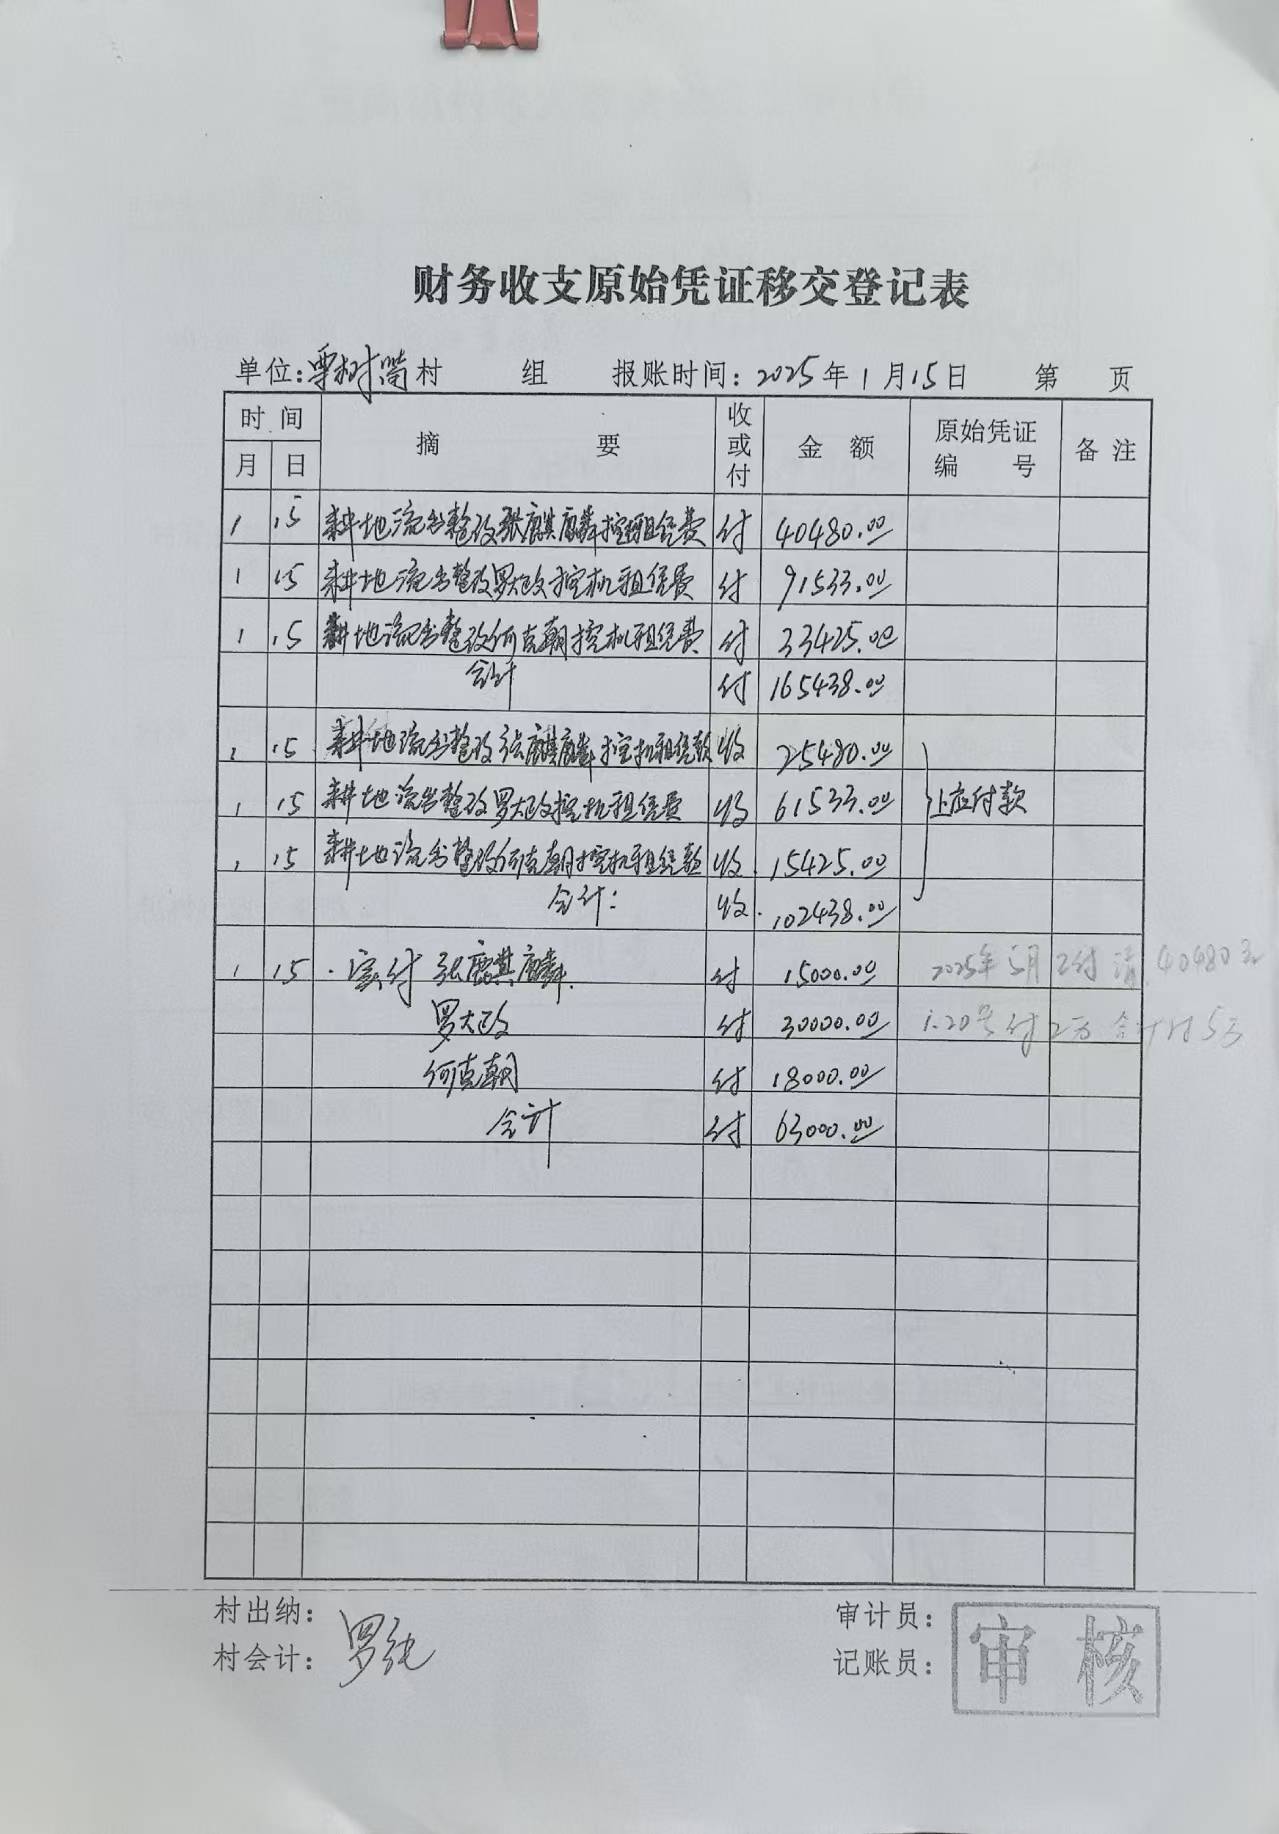 财务收支原始凭证移交登记表
单位:栗树岗村 组 报账时间:2025年1月15日 第 页
时间 摘要 收或付 金额 原始凭证编号 备注
月 日
1 15 耕地流出整改张麒麟挖机租赁费 付 40480.00
1 15 耕地流出整改罗大政挖机租赁费 付 91533.00
1 15 耕地流出整改何克朝挖机租赁费 付 33425.00
合计 付 165438.00
1 15 耕地流出整改张麒麟挖机租赁款 收 25480.00
1 15 耕地流出整改罗大政挖机租赁费 收 61533.00 上应付款
1 15 耕地流出整改何克朝挖机租赁款 收 15425.00
合计: 收 102438.00
1 15 实付 张麒麟 付 15000.00 2025年5月已付清 40480元
罗大政 付 30000.00 1.20号付2万 合计付5万
何克朝 付 18000.00
合计 付 63000.00
村出纳: 审计员:
村会计: 罗纯 记账员:
审核